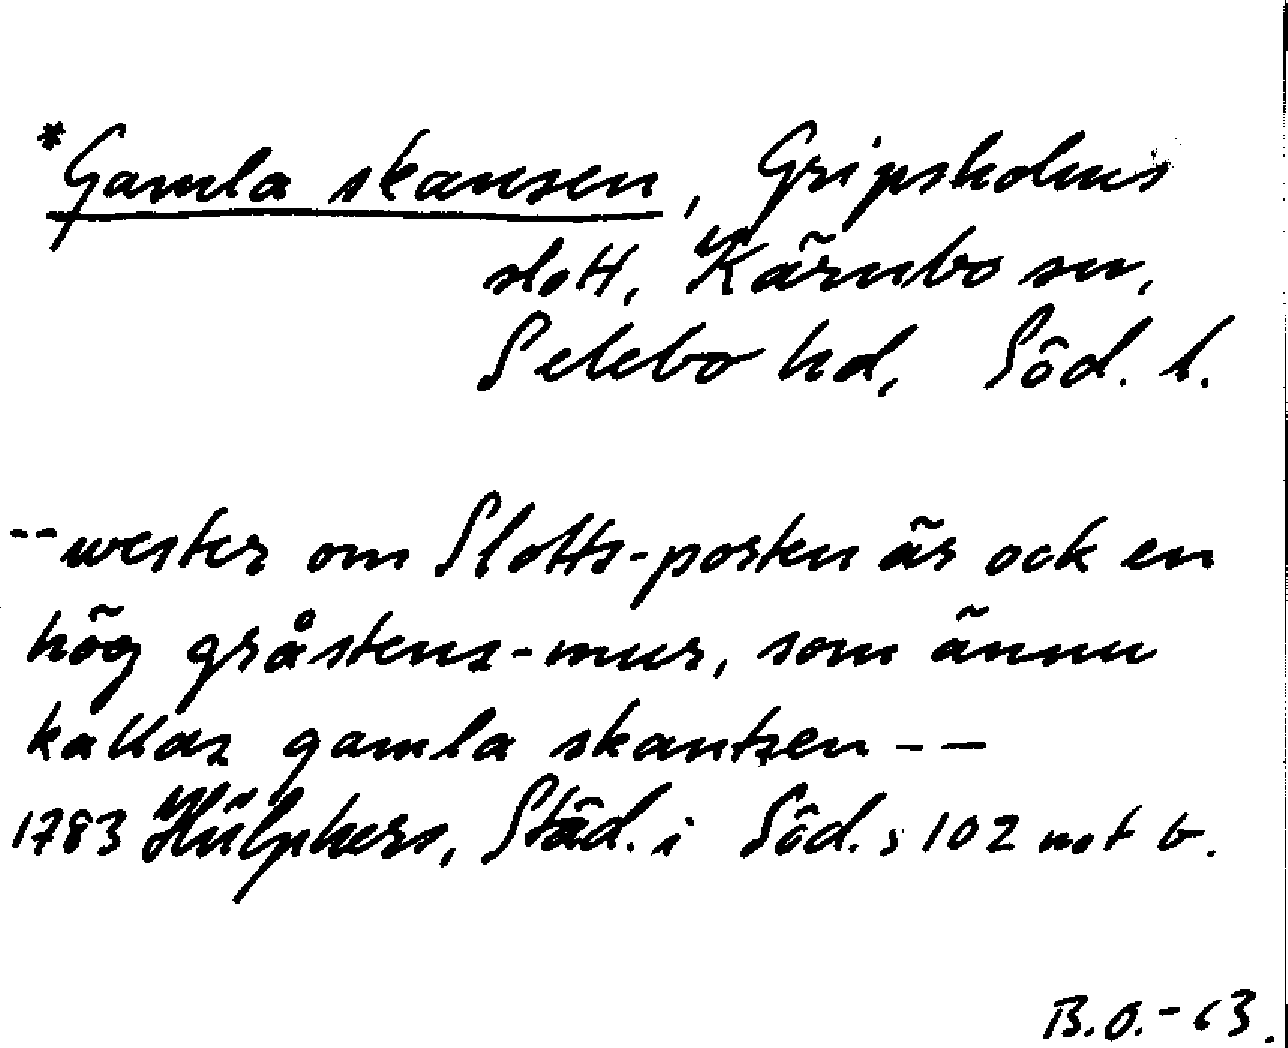 *Gamla skansen, Gripsholms
slott, Kärnbo sn,
Selebo hd, Söd. l.
-- wester om Slotts-porten är ock en
hög gråstens-mur, som ännu
kallas gamla skantzen --
1783 Hülphers, Städ. i Söd. s 102 not b.
B.O.-63.